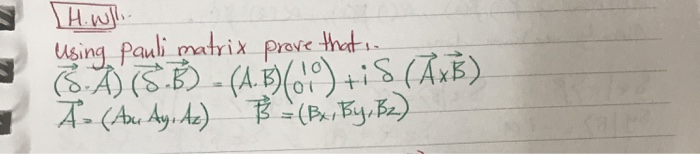 H.W
Using Pauli matrix prove that:-
(δ⃗.A⃗) (δ⃗.B⃗) = (A.B)(1 0 0 1) + i δ (A⃗xB⃗)
A⃗ = (Ax, Ay, Az) B⃗ = (Bx, By, Bz)